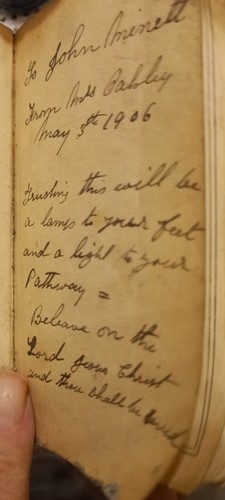 To John Minett
From Mrs Palsby
May 3th 1906
Trusting this will be
a lamp to your feet
and a light to your
Pathway =
Beleave on the
Lord Jesus Christ
and thou shall be saved